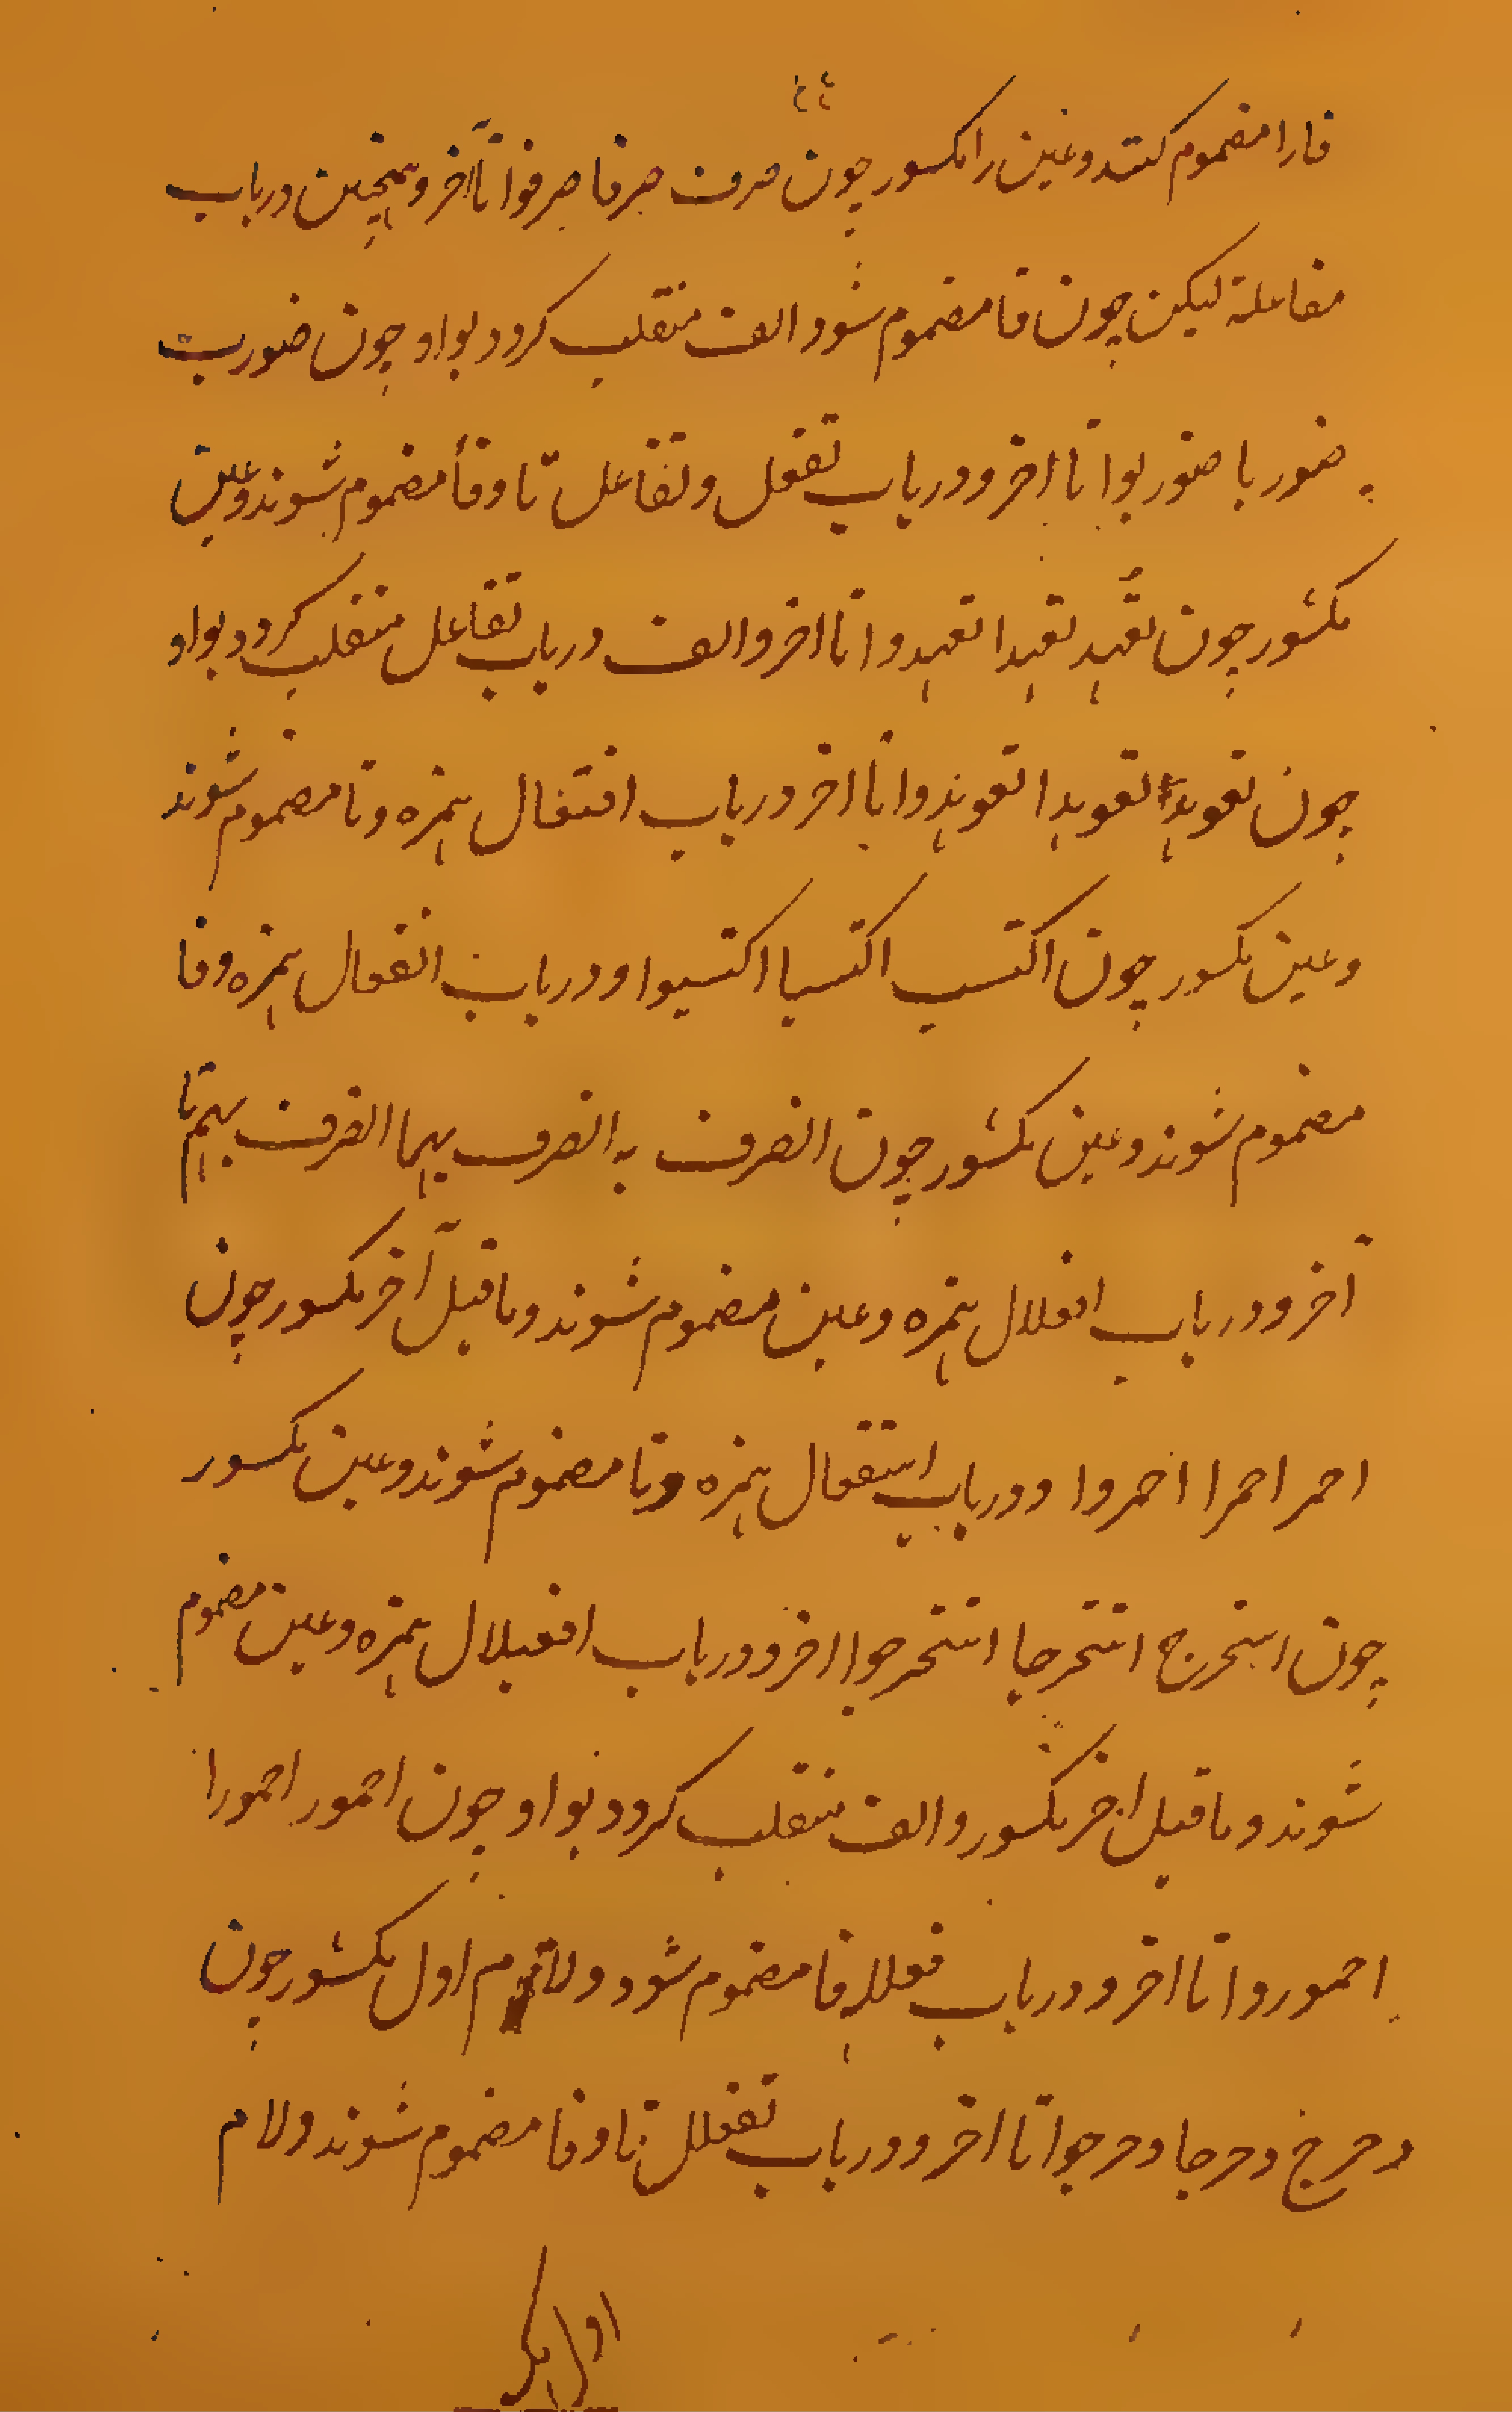 فا را مضموم کنند و عین را مکسور چون صرف صرفا صرفوا تا آخر و همچنین در باب
مفاعلة لیکن چون فا مضموم شود الف منقلب کردد بواو چون ضورب
ضوربا ضوربوا تا اخر و در باب تفعل و تفاعل تا و فا مضموم شوند و عین
مکسور چون تعهد تعهدا تعهدوا تا اخر و الف در باب تفاعل منقلب کردد بواو
چون تعوهد تعوهدا تعوهدوا تا اخر در باب افتعال همزه و تا مضموم شوند
و عین مکسور چون اکتسب اکتسبا اکتسبوا و در باب انفعال همزه و فا
مضموم شوند و عین مکسور چون انصرف به انصرف بهما انصرف بهم تا
آخر و در باب افعلال همزه و عین مضموم شوند و ماقبل آخر مکسور چون
احمر احمرا احمروا و در باب استفعال همزه و تا مضموم شوند و عین مکسور
چون استخرج استخرجا استخرجوا اخر و در باب افعیلال همزه و عین مضموم
شوند و ماقبل اخر مکسور و الف منقلب کردد بواو چون احمور احمورا
احموروا تا اخر و در باب فعلله فا مضموم شود و لام اول مکسور چون
دحرج دحرجا دحرجوا تا اخر و در باب تفعلل تا و فا مضموم شوند و لام
اول مکسور